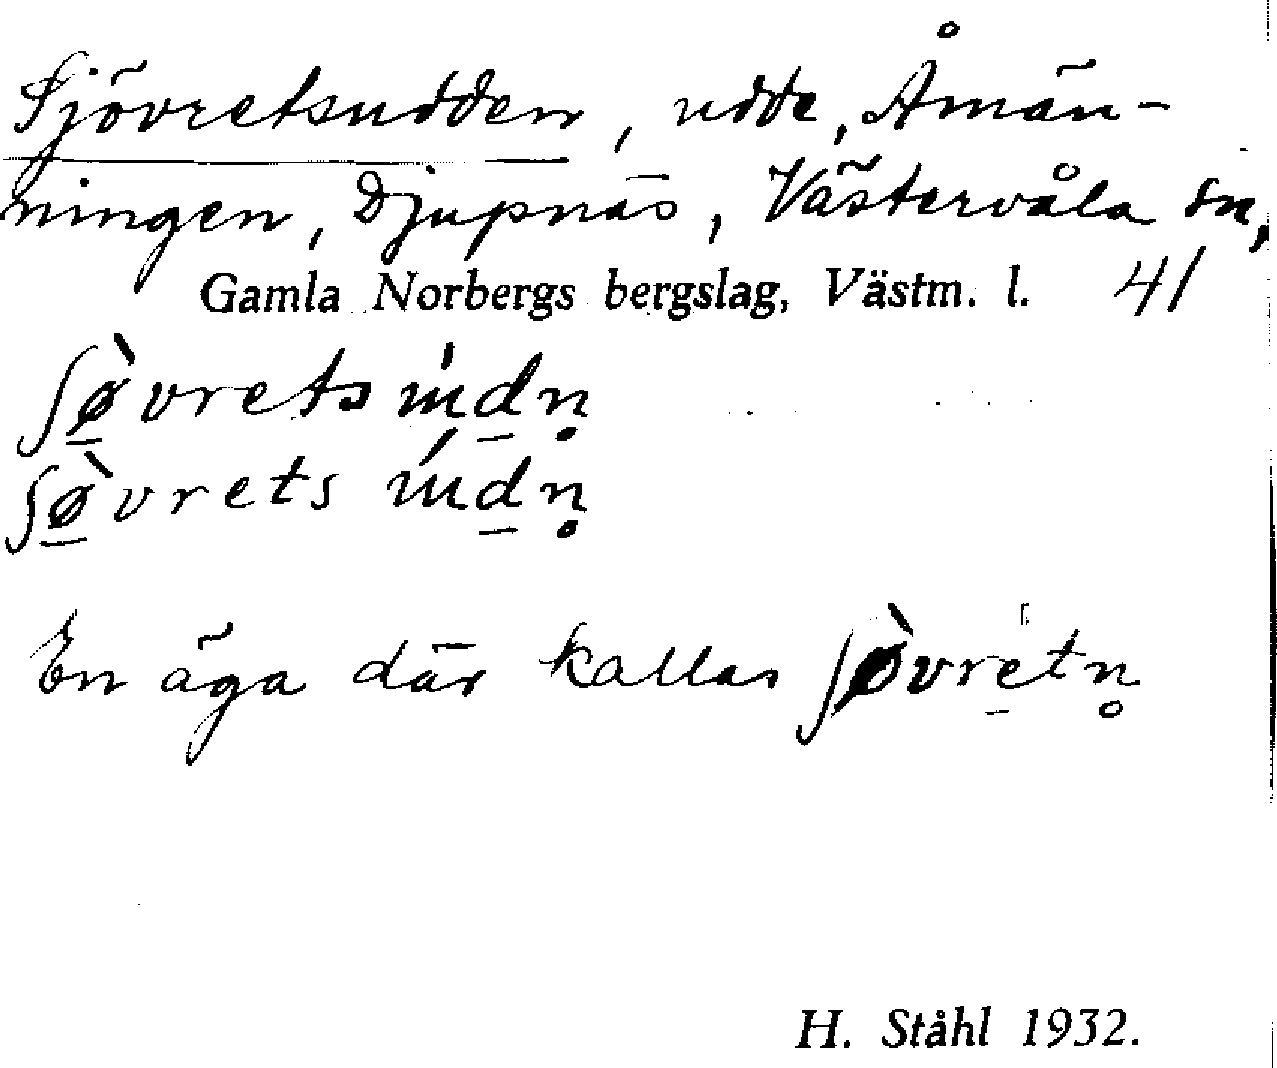 Sjövretsudden, udde, Åmän-
ningen, Djupnäs, Västervåla sn,
Gamla Norbergs bergslag, Västm. l. 41
ʃø̠̀vretsu̍d̠n̥
ʃø̠̀vrets u̍d̠n̥
En äga där kallas ʃø̀vre̠tn̥
H. Ståhl 1932.